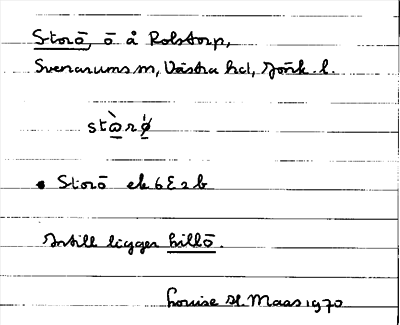 Storö, ö å Rolstorp,
Svenarums sn, Västra hd, Jönk. l.
Storö ek 6 E 2 b
Intill ligger Lillö.
Louise H. Maas 1970